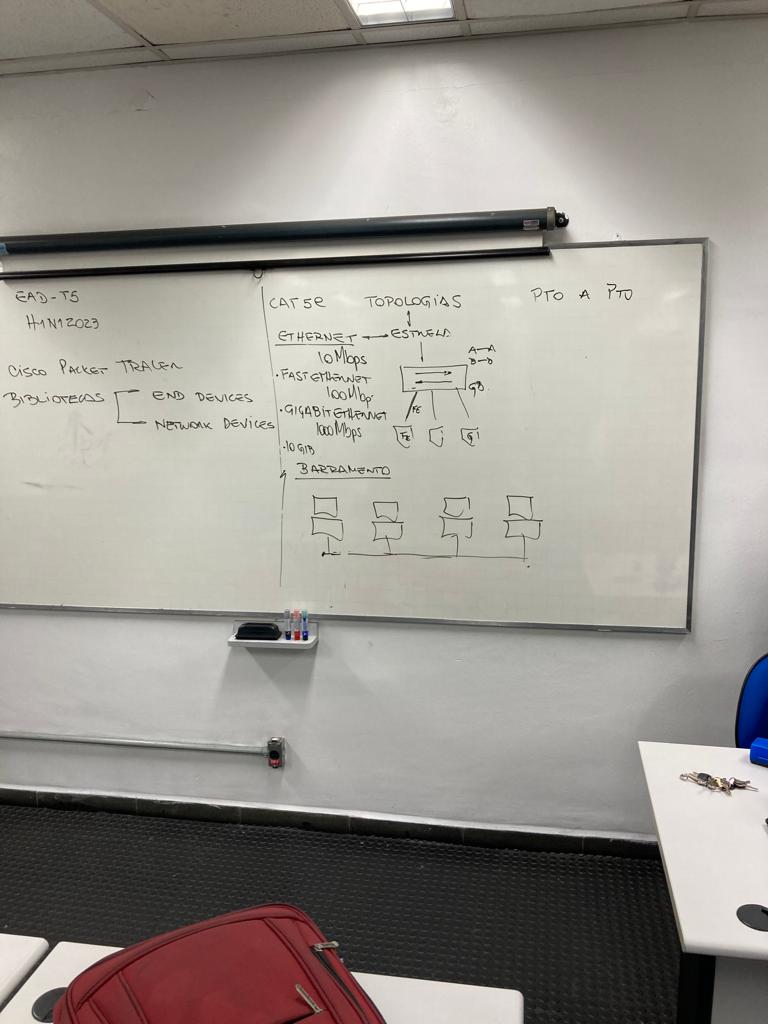 EAD-T5
H1N12023
CISCO PACKET TRACER
BIBLIOTECAS
END DEVICES
NETWORK DEVICES
CAT 5e
TOPOLOGIAS
PTO A PTO
ETHERNET
ESTRELA
10Mbps
A A
B B
• FAST ETHERNET
100Mbp
GB
• GIGABIT ETHERNET
FE
1000Mbps
FE
Gi
• 10 GIB
BARRAMENTO